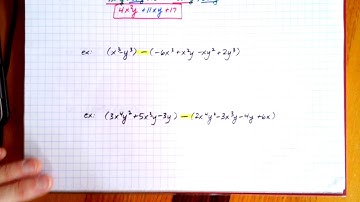 4x²y + 11xy + 17
ex: (x³-y³) - (-6x³+x²y-xy²+2y³)
ex: (3x⁴y²+5x³y-3y) - (2x⁴y²-3x³y-4y+6x)